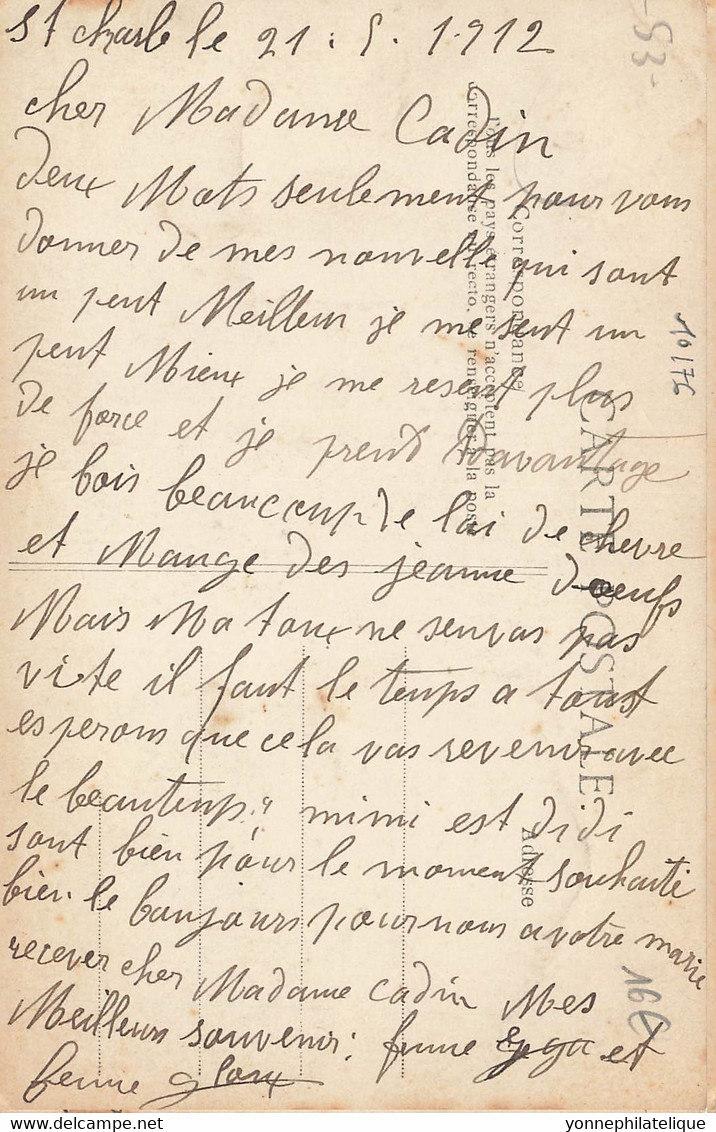 St charle le 21 : 5 . 1912
cher Madame Cadin
deux Mots seulement pour vous
donner de mes nouvelle qui sont
un peut Meilleur je me sent un
peut Mieux je me resent plus
de force et je prend Davantage
je bois beaucoup de lai de chevre
et Mange des jeaune d'oeufs
Mais Ma toux ne senvas pas
vite il faut le temps a tous
esperons que cela vas revenir avec
le beautemps " mimi est didi
sont bien pour le moment souhaite
bien le bonjours pour nous a votre marie
recever cher Madame Cadin Mes
Meilleurs souvenir : femme et
femme
CARTE POSTALE
Correspondance
Tous les pays étrangers n'acceptent pas la
correspondance au recto. Se renseigner à la poste
Adresse
-53-
10176
16€
yonnephilatelique